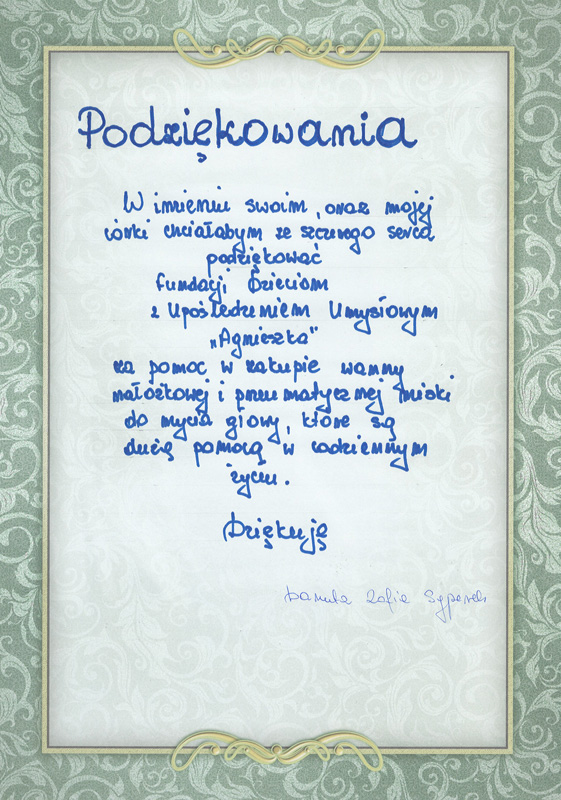 Podziękowania
W imieniu swoim, oraz mojej
córki chciałabym ze szczerego serca
podziękować
Fundacji Dzieciom
z Upośledzeniem Umysłowym
„Agnieszka"
za pomoc w zakupie wanny
nałóżkowej i pneumatycznej miski
do mycia głowy, które są
dużą pomocą w codziennym
życiu.
Dziękuję
Danuta Zofia